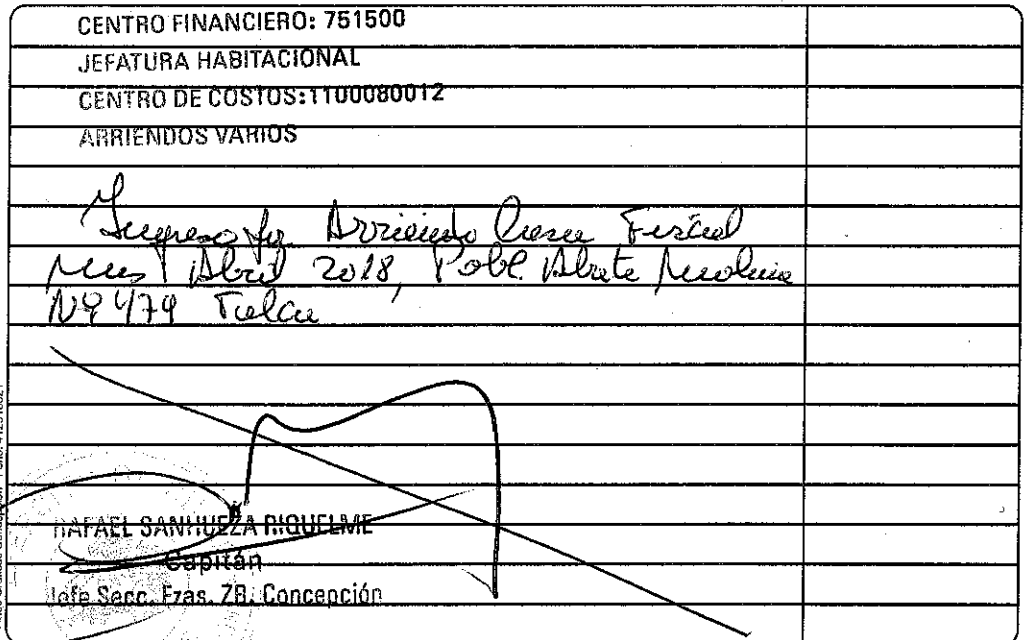 CENTRO FINANCIERO: 751500
JEFATURA HABITACIONAL
CENTRO DE COSTOS:1100080012
ARRIENDOS VARIOS
Ingreso por Arriendo Casa Fiscal
Mes Abril 2018, Pobl. Abate Molina
Nº 479 Talca
RAFAEL SANHUEZA RIQUELME
Capitán
Jefe Secc. Fzas. ZB. Concepción